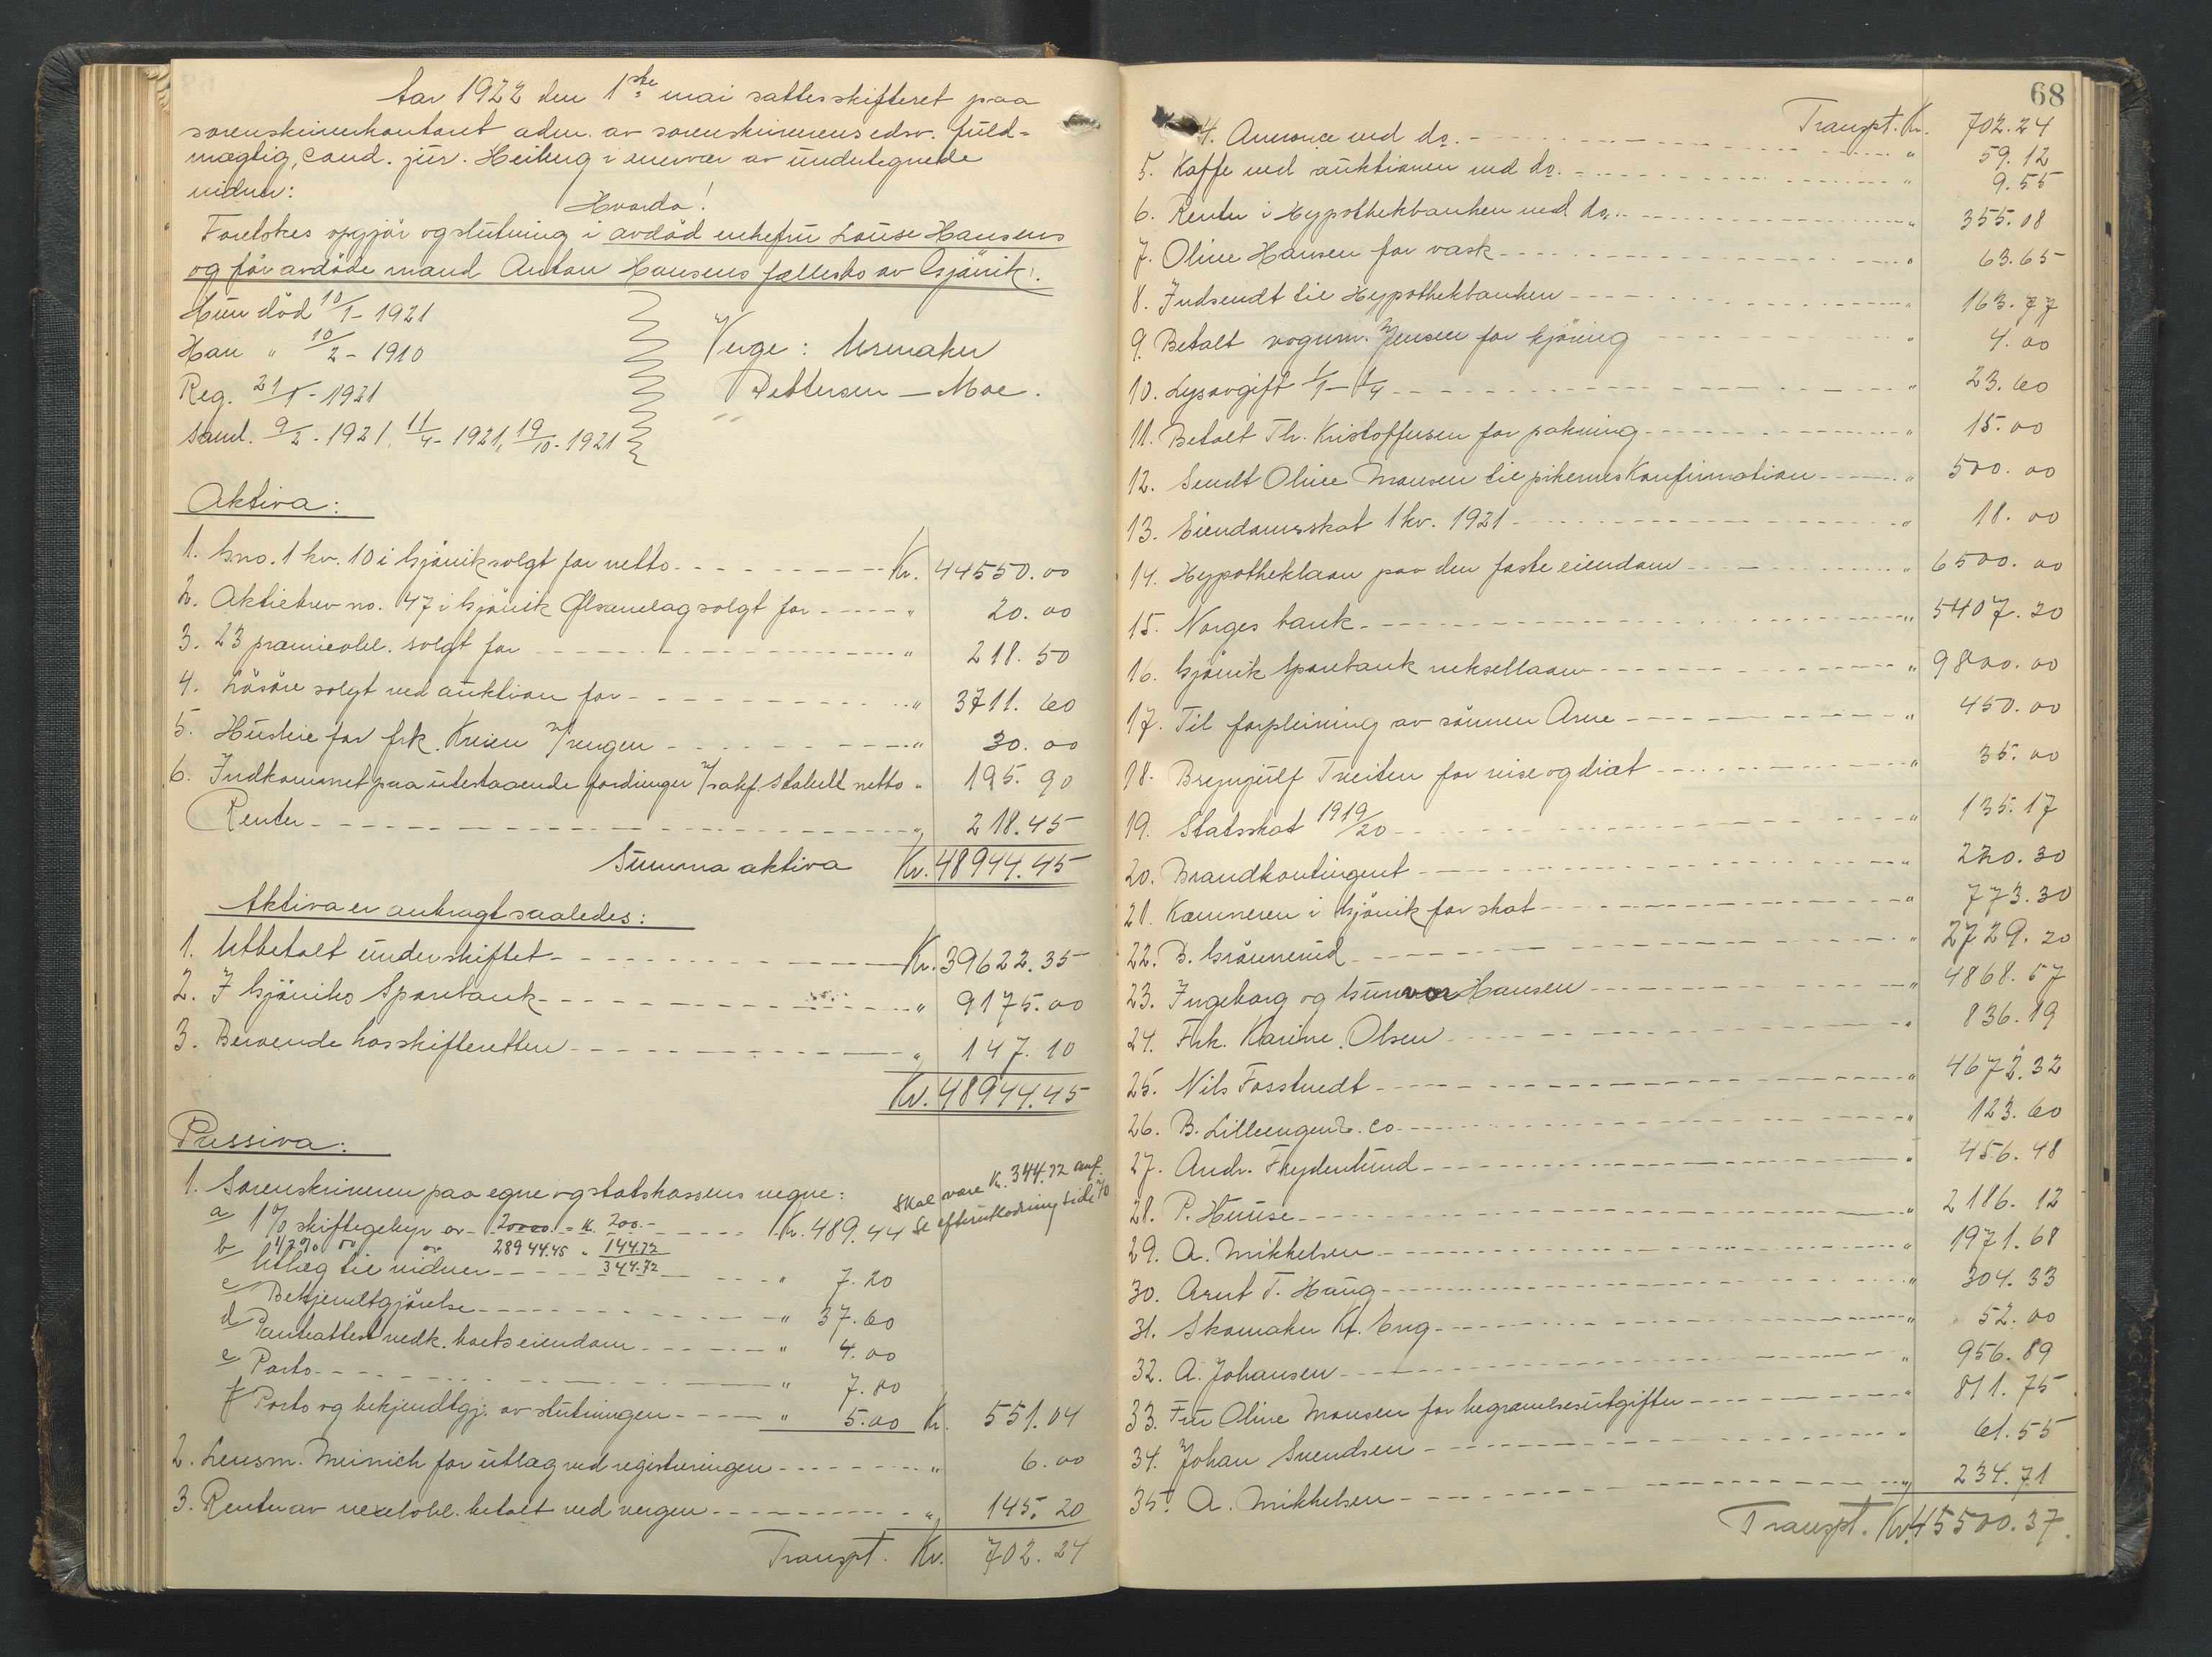 Aar 1922 den 1ste mai sattes skifteret paa
sorenskriverkontoret adm. av sorenskriverens edsv. fuld-
mægtig, cand. jur. Heiberg i overvær av undertegnede
vidner:
Hvorda!
Foretokes opgjör og slutning i avdöd enkefru Louise Hansens
ogför avdöde mand Anton Hansens fællesbo av Gjövik.
Hun död 10/1 - 1921
Han " 10/2 - 1910
Reg. 21/1 - 1921
Saml. 9/2 - 1921, 11/4 - 1921, 19/10 - 1921
Verge: Urmaker
Pettersen — Moe.
Aktiva:
1. Gno. 1 kv. 10 i Gjövik solgt for netto Kr. 44550.00
2. Aktiebrev no. 47 i Gjövik Ølsamlag solgt for " 20.00
3. 23 præmieobl. solgt for " 218.50
4. Lösöre solgt ved auktion for " 3711.60
5. Husleie for frk. Kreien v/vergen " 30.00
6. Indkommet paa utestaaende fordringer v/sakf. Stabell netto " 195.90
Renter " 218.45
Summa aktiva Kr. 48944.45
Aktiva er anbragt saaledes:
1. Utbetalt under skiftet Kr. 39622.35
2. I Gjöviks Sparebank " 9175.00
3. Beroende hos skifteretten " 147.10
Kr. 48944.45
Passiva:
1. Sorenskriveren paa egne og statskassens vegne:
Skal være Kr. 344.72 anf.
Se efterutlodning side 70
a 1% skiftegebyr av 20000 = K. 200.- Kr. 489.44
1/2 % do av 28944.45 " 144.72
344.72
b Utlæg til vidner " 7.20
c Bekjendtgjörelse " 37.60
d Panteattest vedk. boets eiendom " 4.00
e Porto " 7.80
f Porto og bekjendtgj. av slutningen " 5.00 Kr. 551.04
2. Lensm. Meinich for utlæg ved registreringen " 6.00
3. Renter av vexelobl. betalt ved vergen " 145.20
Transpt. Kr. 702.24
68
Transpt. Kr. 702.24
4. Annonce ved do. " 59.12
5. Kaffe ved auktionen ved do. " 9.55
6. Renter i Hypothekbanken ved do. " 355.08
7. Oline Hansen for vask " 63.65
8. Indsendt til Hypothekbanken " 163.77
9. Betalt vognm. Jensen for kjöring " 4.00
10. Lysavgift 1/1 - 1/4 " 23.60
11. Betalt Th. Kristoffersen for pakning " 15.00
12. Sendt Oline Monsen til pikernes Konfirmation " 500.00
13. Eiendomsskat 1 kv. 1921 " 18.00
14. Hypotheklaan paa den faste eiendom " 6500.00
15. Norges bank " 5407.20
16. Gjövik Sparebank veksellaan " 9800.00
17. Til forpleining av sönnen Arne " 450.00
18. Brynjulf Tveiten for reise og diæt " 35.00
19. Statsskat 1919/20 " 135.17
20. Brandkontingent " 220.30
21. Kæmneren i Gjövik for skat " 773.30
22. B. Grönnerud " 2729.20
23. Ingeborg og Gunvor Hansen " 4868.57
24. Frk. Karine Olsen " 836.19
25. Nils Fosstvedt " 4672.32
26. B. Lilleengen & Co " 123.60
27. Andr. Frydenlund " 456.48
28. P. Huuse " 2186.12
29. A. Mikkelsen " 1971.68
30. Arnt T. Haug " 304.33
31. Skomaker Kr. Eng " 52.00
32. A. Johansen " 956.89
33. Fru Oline Monsen for begravelsesutgifter " 811.75
34. Johan Svendsen " 61.55
35. A. Mikkelsen " 234.71
Transpt. Kr. 45500.37.